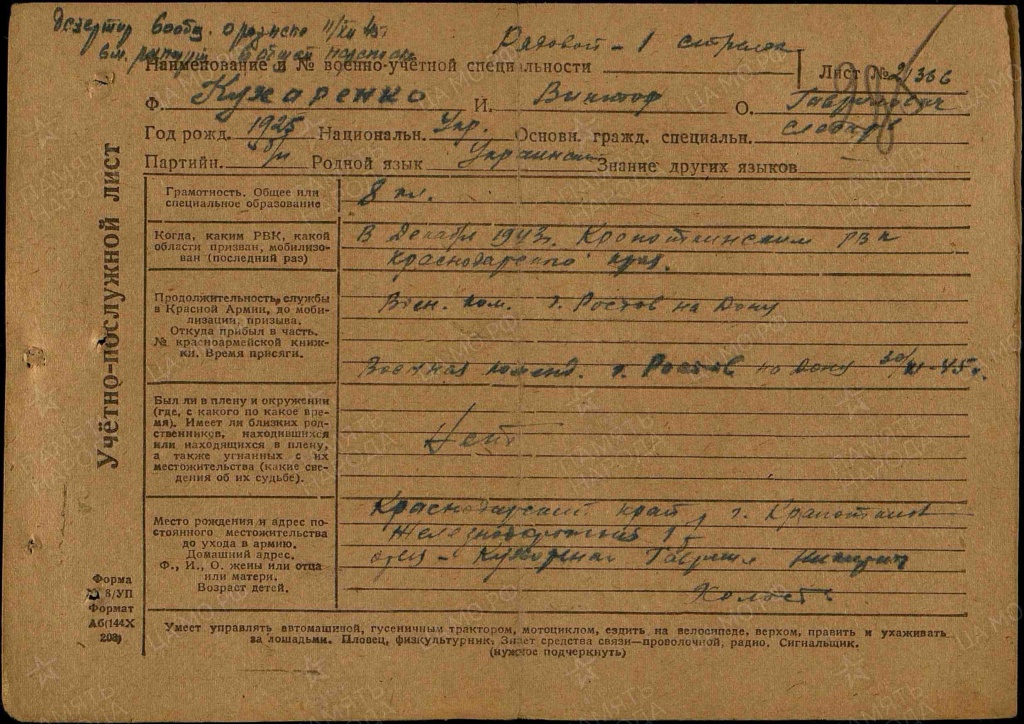 дезертир сообщ. о розыске 11/XII 45
Рядовой - 1 стрелок
Наименование и № военно-учётной специальности
Лист № 21366
Ф. Кухаренко И. Виктор О. Гаврилович
Год рожд. 1925 Национальн. Укр. Основн. гражд. специальн. слесарь
Партийн. б/п Родной язык Украинский Знание других языков
Учётно-послужной лист
Грамотность. Общее или
специальное образование
8 кл.
Когда, каким РВК, какой
области призван, мобилизо-
ван (последний раз)
В Декабре 1943 г. Кропоткинским РВК
Краснодарского края.
Продолжительность службы
в Красной Армии, до моби-
лизации, призыва.
Откуда прибыл в часть.
№ красноармейской книж-
ки. Время присяги.
Воен. ком. г. Ростов на Дону
Военная коменд. г. Ростов на Дону 30/XI-45 г.
Был ли в плену и окружении
(где, с какого по какое вре-
мя). Имеет ли близких род-
ственников, находившихся
или находящихся в плену,
а также угнанных с их
местожительства (какие све-
дения об их судьбе).
Нет
Место рождения и адрес по-
стоянного местожительства
до ухода в армию.
Домашний адрес.
Ф., И., О. жены или отца
или матери.
Возраст детей.
Краснодарский край, г. Крапоткин
отец - Кухаренко Гаврил Никитич
Холост
Форма
№ 8/УП
Формат
А6(144Х
203)
Умеет управлять автомашиной, гусеничным трактором, мотоциклом, ездить на велосипеде, верхом, править и ухаживать
за лошадьми. Пловец, физкультурник. Знает средства связи—проволочной, радио. Сигнальщик.
(нужное подчеркнуть)